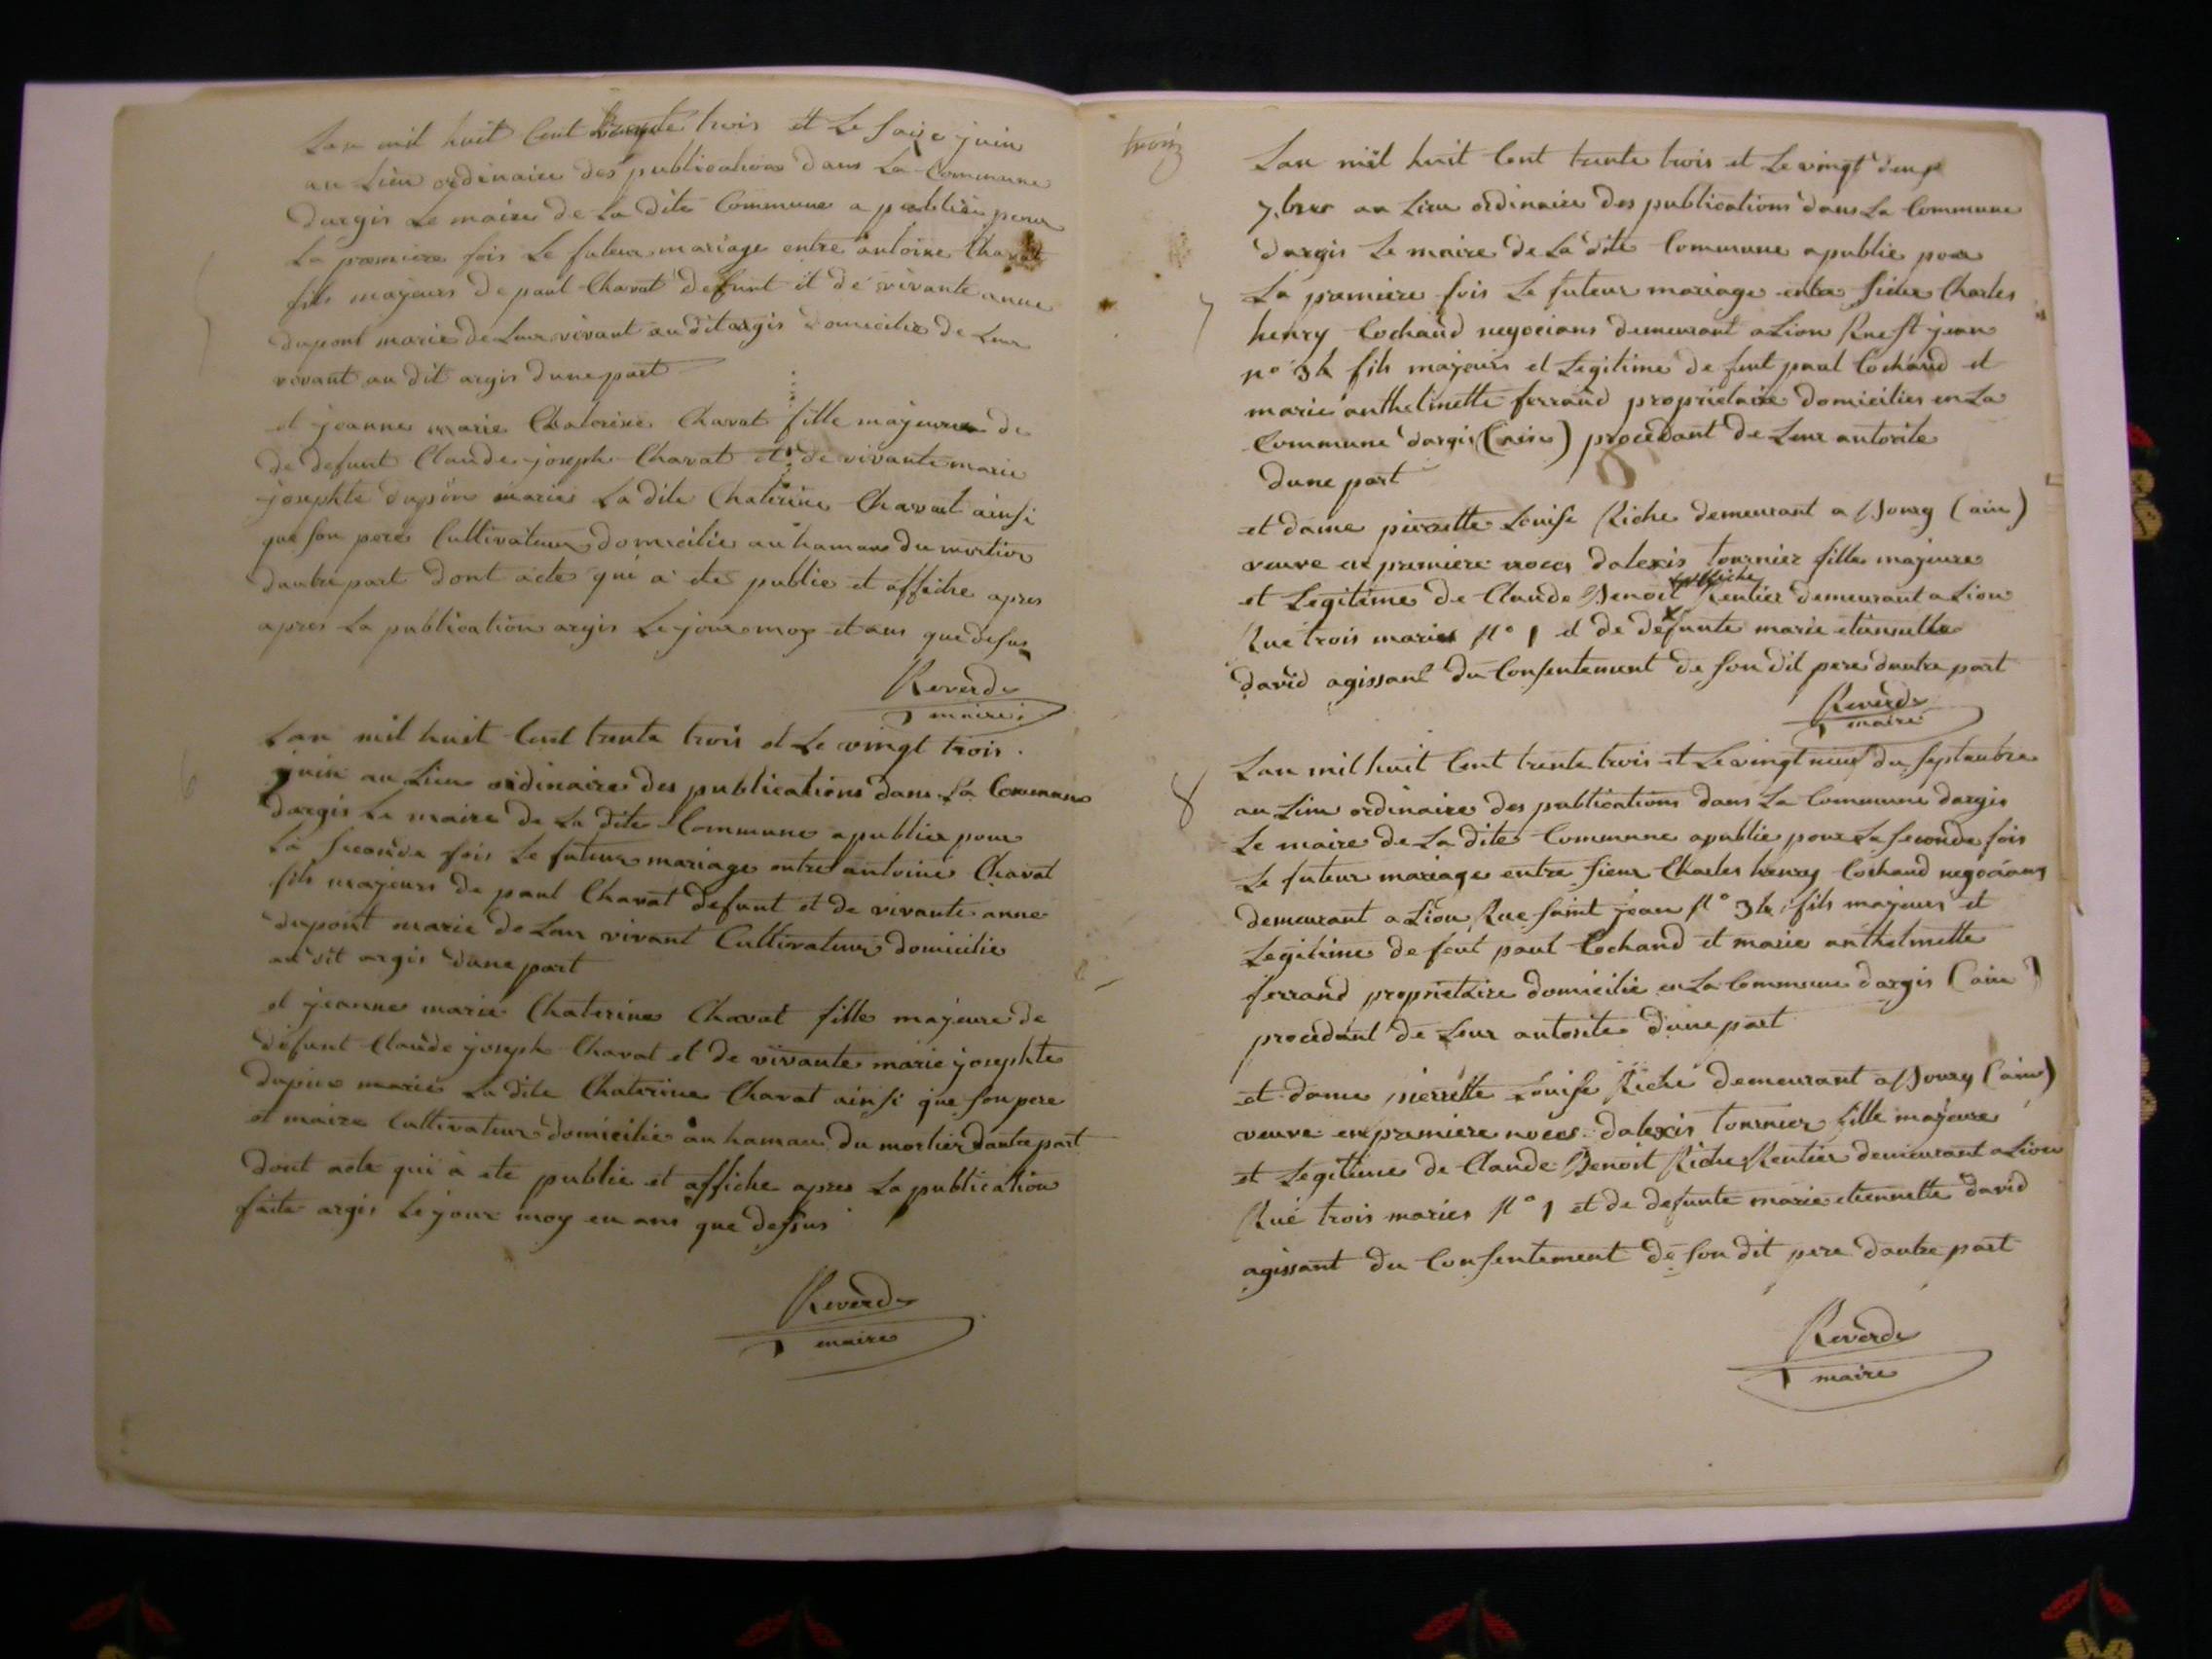 Lan mil huit Cent trente trois et Le saize juin
au Lieu ordinaire des publications dans La Commune
dargis Le maire de La dite Commune a publiée pour
La premiere fois Le futeur mariage entre antoine Chavat
fils majeurs de paul Chavat defunt et de vivante anne
dupont marié de Leur vivant au dit argis domicilié de Leur
vivant au dit argis dune part
et jeanne marie Chaterine Chavat fille majeure de
de defunt Claude joseph Chavat et de vivante marie
josephte dupin mariés La dite Chaterine Chavat ainsi
que son pere Cultivateur domicilié au hamau du mortier
dautre part dont acte qui a ete publie et affiche apres
apres La publication argis Le jour moy et ans que desus
Reverdy
maire
6
Lan mil huit Cent trente trois et Le vingt trois
juin au Lieu ordinaire des publications dans La Commune
dargis Le maire de La dite Commune a publiée pour
La seconde fois Le futeur mariage entre antoine Chavat
fils majeurs de paul Chavat defunt et de vivante anne
dupont marié de Leur vivant Cultivateur domicilié
au dit argis dune part
et jeanne marie Chaterine Chavat fille majeure de
defunt Claude joseph Chavat et de vivante marie josephte
dupin mariés La dite Chaterine Chavat ainsi que son pere
et maire Cultivateur domicilié au hamau du mortier dautre part
dont acte qui à ete publié et affiche apres La publication
faite argis Le jour moy en ans que dessus
Reverdy
maire
trois
7
Lan mil huit Cent trente trois et Le vingt deux
7.bre au Lieu ordinaire des publications dans La Commune
dargis Le maire de La dite Commune a publie pour
La premiere fois Le futeur mariage entre sieur Charles
henry Cochand negocians demeurant a Lion Rue St jean
no 34 fils majeurs et Legitime de feut paul Cochand et
marie anthelmette ferrand proprietaire domiciliés en La
Commune dargis (ain) procédant de Leur autorite
dune part
et dame pierrette Louise Riche demeurant a Bourg (ain)
veuve en premiere noces dalexis tournier fille majeure
et Legitime de Claude Benoit Riche Rentier demeurant a Lion
Rue trois maries No 1 et de defunte marie etiennette
david agissant du Consentement de son dit pere dautre part
Reverdy
maire
8
Lan mil huit Cent trente trois et Le vingt neuf du Septembre
au Lieu ordinaire des publications dans La Commune dargis
Le maire de La dite Commune a publie pour La seconde fois
Le futeur mariage entre sieur Charles henry Cochand negocians
demeurant a Lion Rue saint jean No 34, fils majeurs et
Legitime de feut paul Cochand et marie anthelmette
ferrand proprietaire domicilié en La Commune dargis (ain)
procedant de Leur autorite dune part
et dame pierrette Louise Riche demeurant a Bourg (ain)
veuve en premiere noces dalexis tournier fille majeure
et Legitime de Claude Benoit Riche Rentier demeurant a Lion
Rue trois maries No 1 et de defunte marie etiennette david
agissant du Consentement de son dit pere dautre part
Reverdy
maire